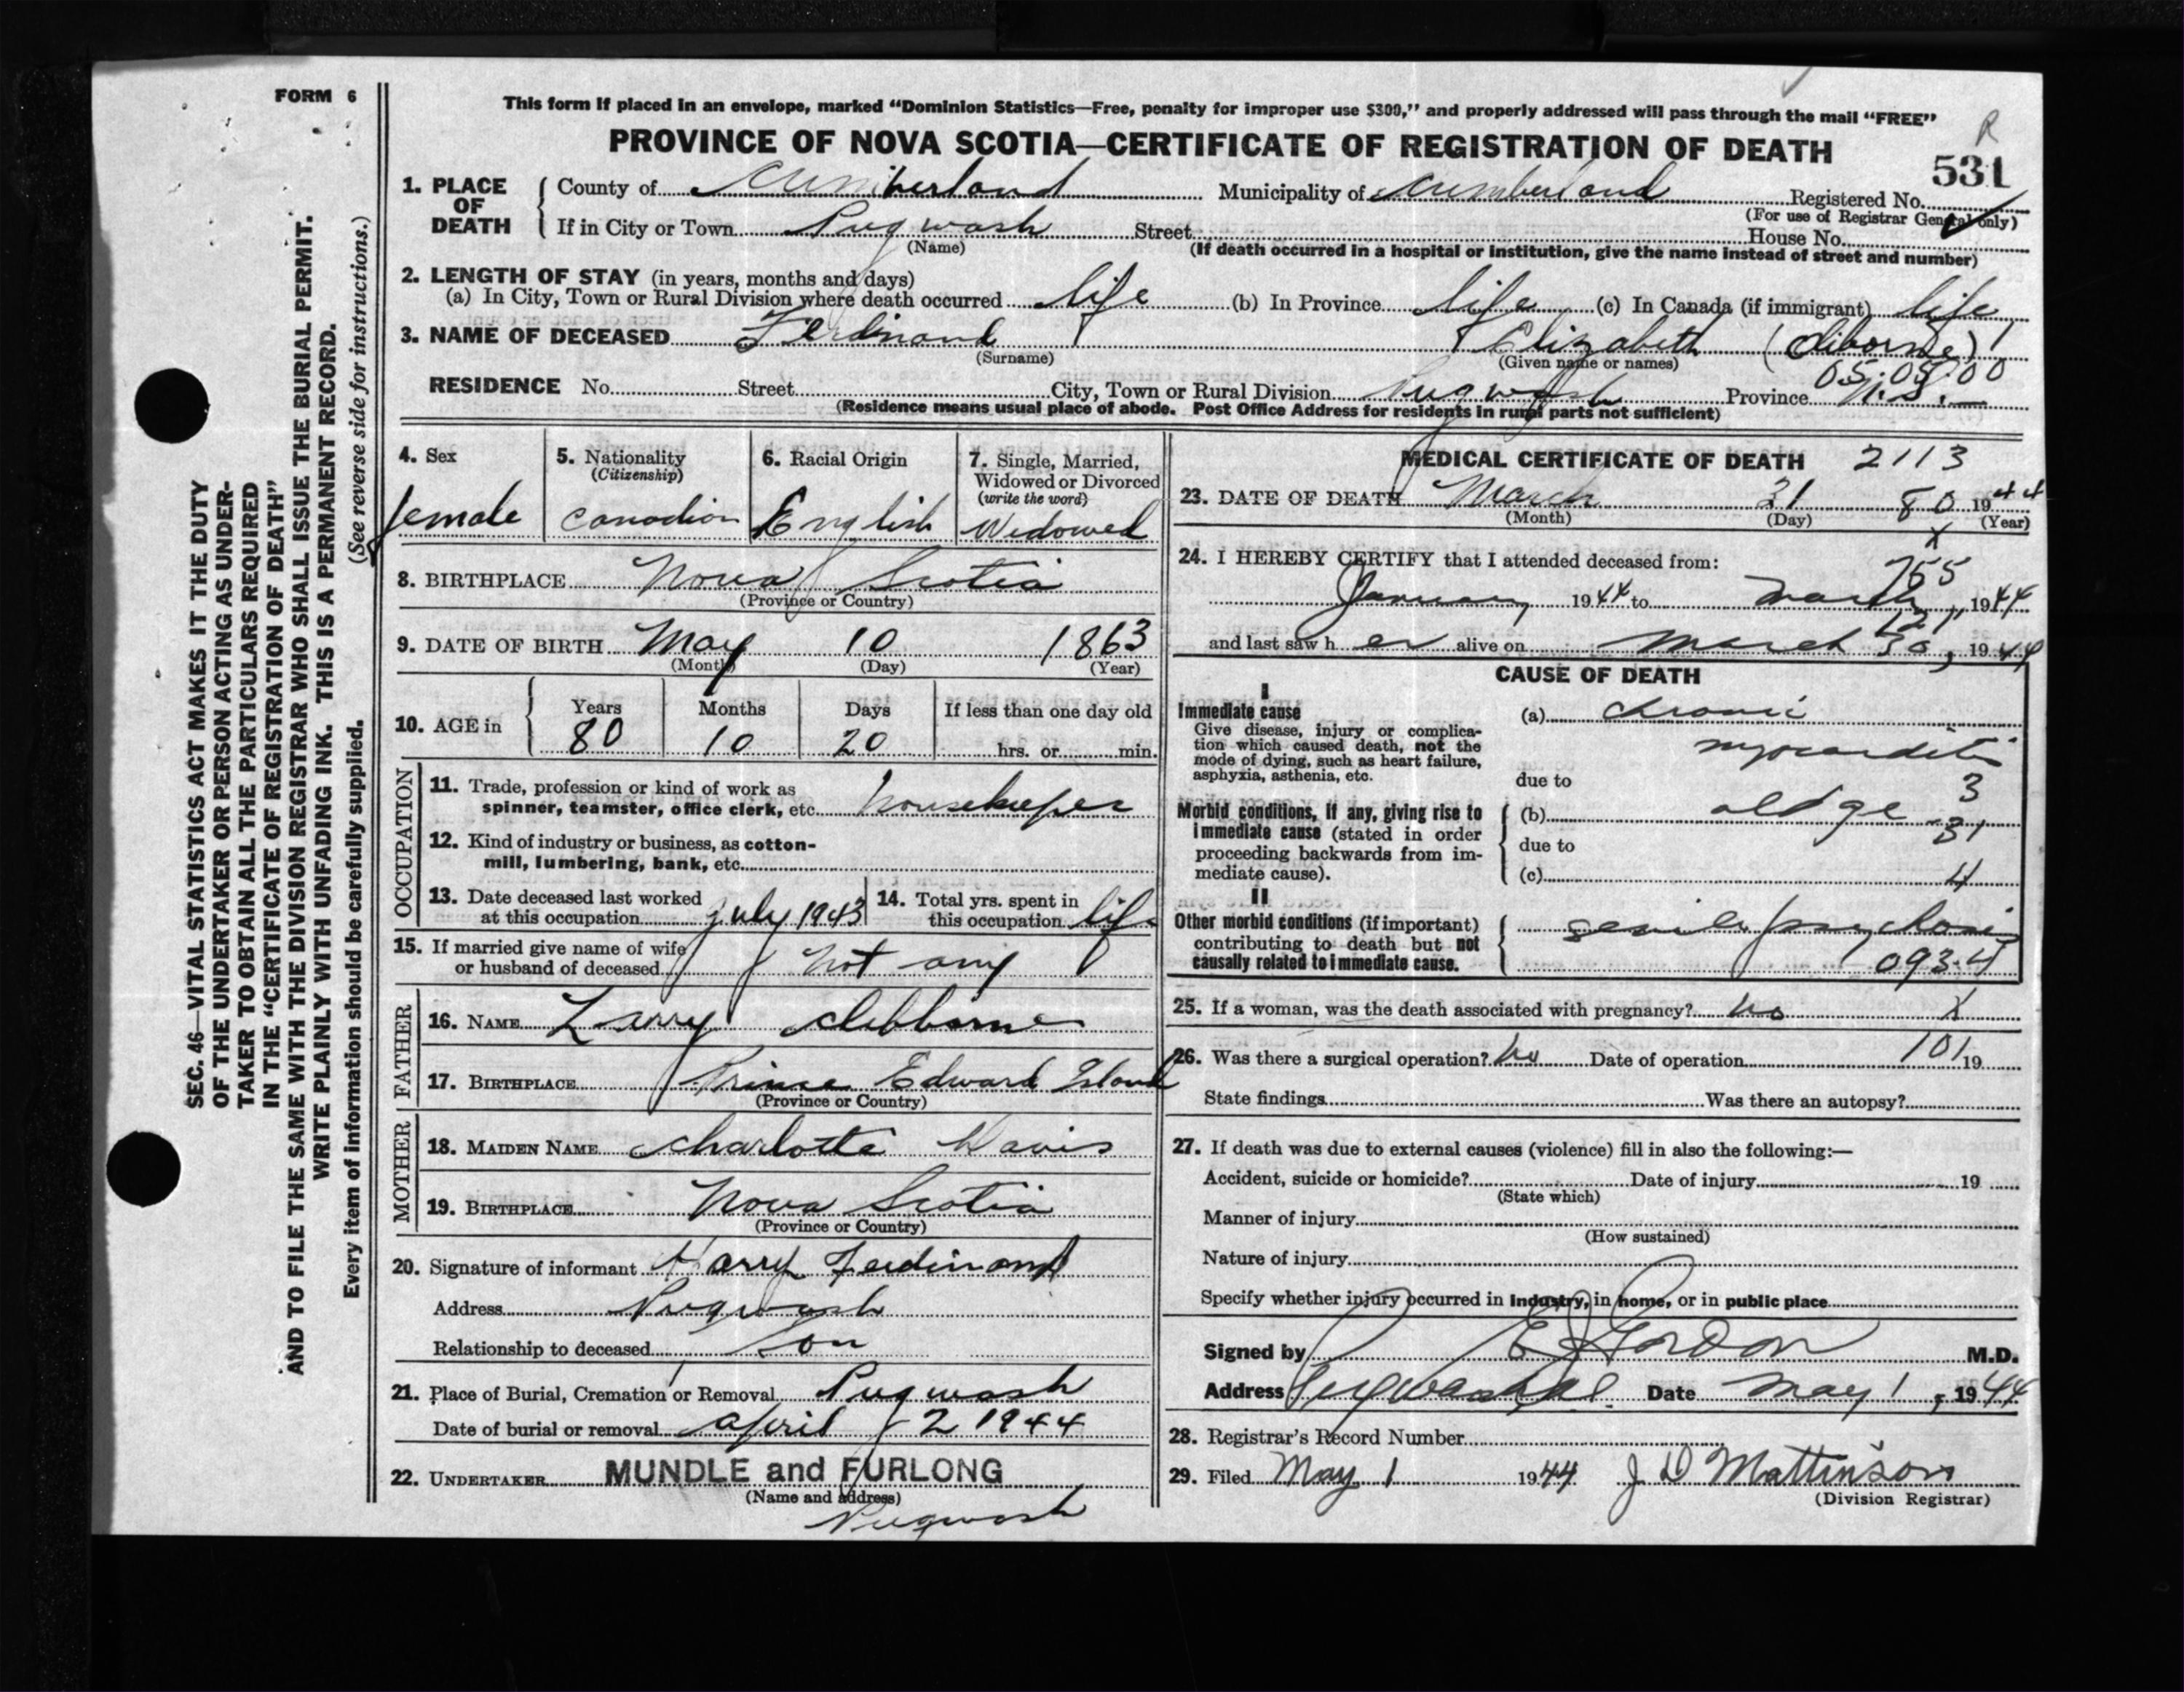 FORM 6
This form if placed in an envelope, marked "Dominion Statistics—Free, penalty for improper use $300," and properly addressed will pass through the mail "FREE"
PROVINCE OF NOVA SCOTIA—CERTIFICATE OF REGISTRATION OF DEATH
R
531
1. PLACE OF DEATH County of Cumberland Municipality of Cumberland Registered No.
(For use of Registrar General only)
If in City or Town Pugwash Street House No.
(Name) (If death occurred in a hospital or institution, give the name instead of street and number)
2. LENGTH OF STAY (in years, months and days)
(a) In City, Town or Rural Division where death occurred life (b) In Province life (c) In Canada (if immigrant) life
3. NAME OF DECEASED Ferdinand Elizabeth (Cliborne)
(Surname) (Given name or names)
05:05:00
RESIDENCE No. Street City, Town or Rural Division Pugwash Province N.S.
(Residence means usual place of abode. Post Office Address for residents in rural parts not sufficient)
4. Sex 5. Nationality 6. Racial Origin 7. Single, Married,
(Citizenship) Widowed or Divorced
(write the word)
female Canadian English Widowed
8. BIRTHPLACE Nova Scotia
(Province or Country)
9. DATE OF BIRTH May 10 1863
(Month) (Day) (Year)
10. AGE in Years Months Days If less than one day old
80 10 20 hrs. or min.
OCCUPATION
11. Trade, profession or kind of work as
spinner, teamster, office clerk, etc. housekeeper
12. Kind of industry or business, as cotton-
mill, lumbering, bank, etc.
13. Date deceased last worked 14. Total yrs. spent in
at this occupation July 1943 this occupation life
15. If married give name of wife
or husband of deceased not any
FATHER
16. NAME Larry Clibborne
17. BIRTHPLACE Prince Edward Island
(Province or Country)
MOTHER
18. MAIDEN NAME Charlotte Davis
19. BIRTHPLACE Nova Scotia
(Province or Country)
20. Signature of informant Harry Ferdinand
Address Pugwash
Relationship to deceased Son
21. Place of Burial, Cremation or Removal Pugwash
Date of burial or removal April 2 1944
22. UNDERTAKER MUNDLE and FURLONG
(Name and address)
Pugwash
MEDICAL CERTIFICATE OF DEATH 2113
23. DATE OF DEATH March 31 80 1944
(Month) (Day) (Year)
x
24. I HEREBY CERTIFY that I attended deceased from:
755
January 1944 to March, 1944
121
and last saw her alive on March 30, 1944
CAUSE OF DEATH
I
Immediate cause (a) Chronic
Give disease, injury or complica-
tion which caused death, not the
mode of dying, such as heart failure,
asphyxia, asthenia, etc.
myocarditis
due to 3
Morbid conditions, if any, giving rise to
immediate cause (stated in order
proceeding backwards from im-
mediate cause).
(b) old ge 31
due to
(c) 4
II
Other morbid conditions (if important)
contributing to death but not
causally related to immediate cause.
senile psychosis
093.4
25. If a woman, was the death associated with pregnancy? no X
26. Was there a surgical operation? no Date of operation 101 19
State findings Was there an autopsy?
27. If death was due to external causes (violence) fill in also the following:—
Accident, suicide or homicide? Date of injury 19
(State which)
Manner of injury
(How sustained)
Nature of injury
Specify whether injury occurred in industry, in home, or in public place
Signed by Gordon M.D.
Address Pugwash Date May 1, 1944
28. Registrar's Record Number
29. Filed May 1 1944 J D Mattinson
(Division Registrar)
SEC. 46—VITAL STATISTICS ACT MAKES IT THE DUTY
OF THE UNDERTAKER OR PERSON ACTING AS UNDER-
TAKER TO OBTAIN ALL THE PARTICULARS REQUIRED
IN THE "CERTIFICATE OF REGISTRATION OF DEATH"
AND TO FILE THE SAME WITH THE DIVISION REGISTRAR WHO SHALL ISSUE THE BURIAL PERMIT.
WRITE PLAINLY WITH UNFADING INK. THIS IS A PERMANENT RECORD.
Every item of information should be carefully supplied. (See reverse side for instructions.)